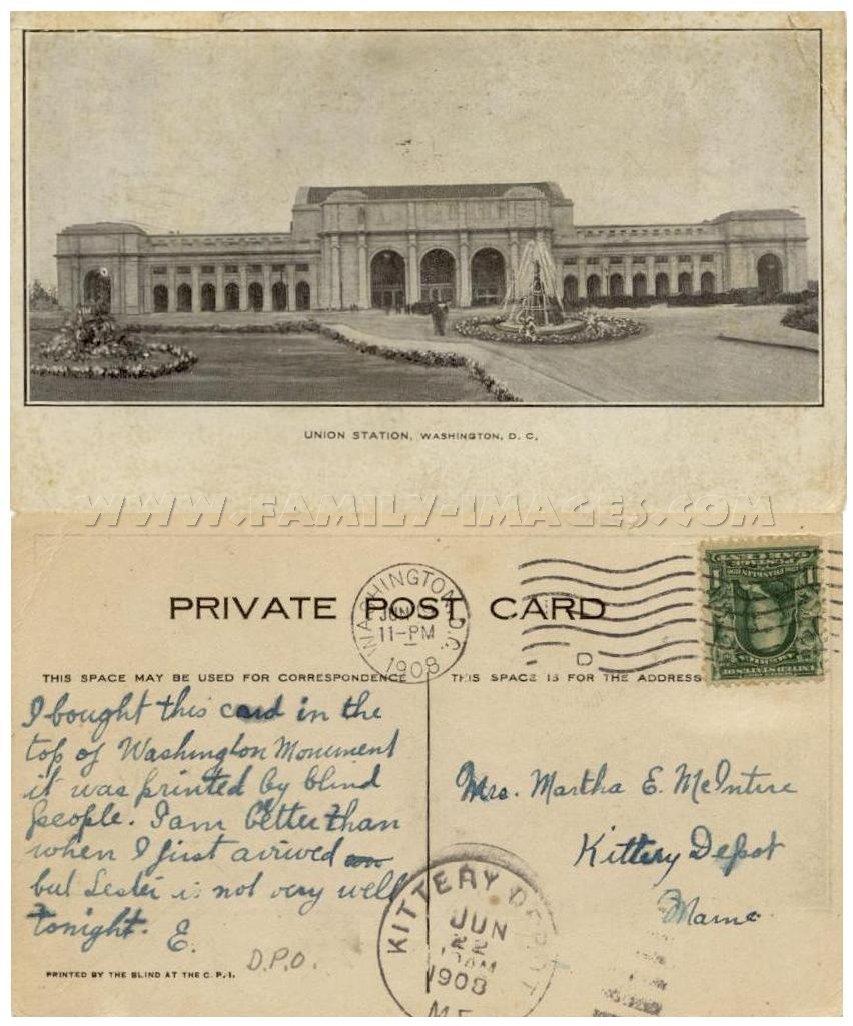 UNION STATION, WASHINGTON, D. C.
WWW.FAMILY-IMAGES.COM
PRIVATE POST CARD
WASHINGTON, D.C.
JUN
11-PM
1908
D
THIS SPACE MAY BE USED FOR CORRESPONDENCE
THIS SPACE IS FOR THE ADDRESS
I bought this card in the
top of Washington Monument
it was printed by blind
people. I am better than
when I first arived
but Lester is not very well
tonight. E.
D.P.O.
PRINTED BY THE BLIND AT THE C. P. I.
Mrs. Martha E. McIntire
Kittery Depot
Maine
KITTERY DEPOT
JUN
22
AM
1908
ME